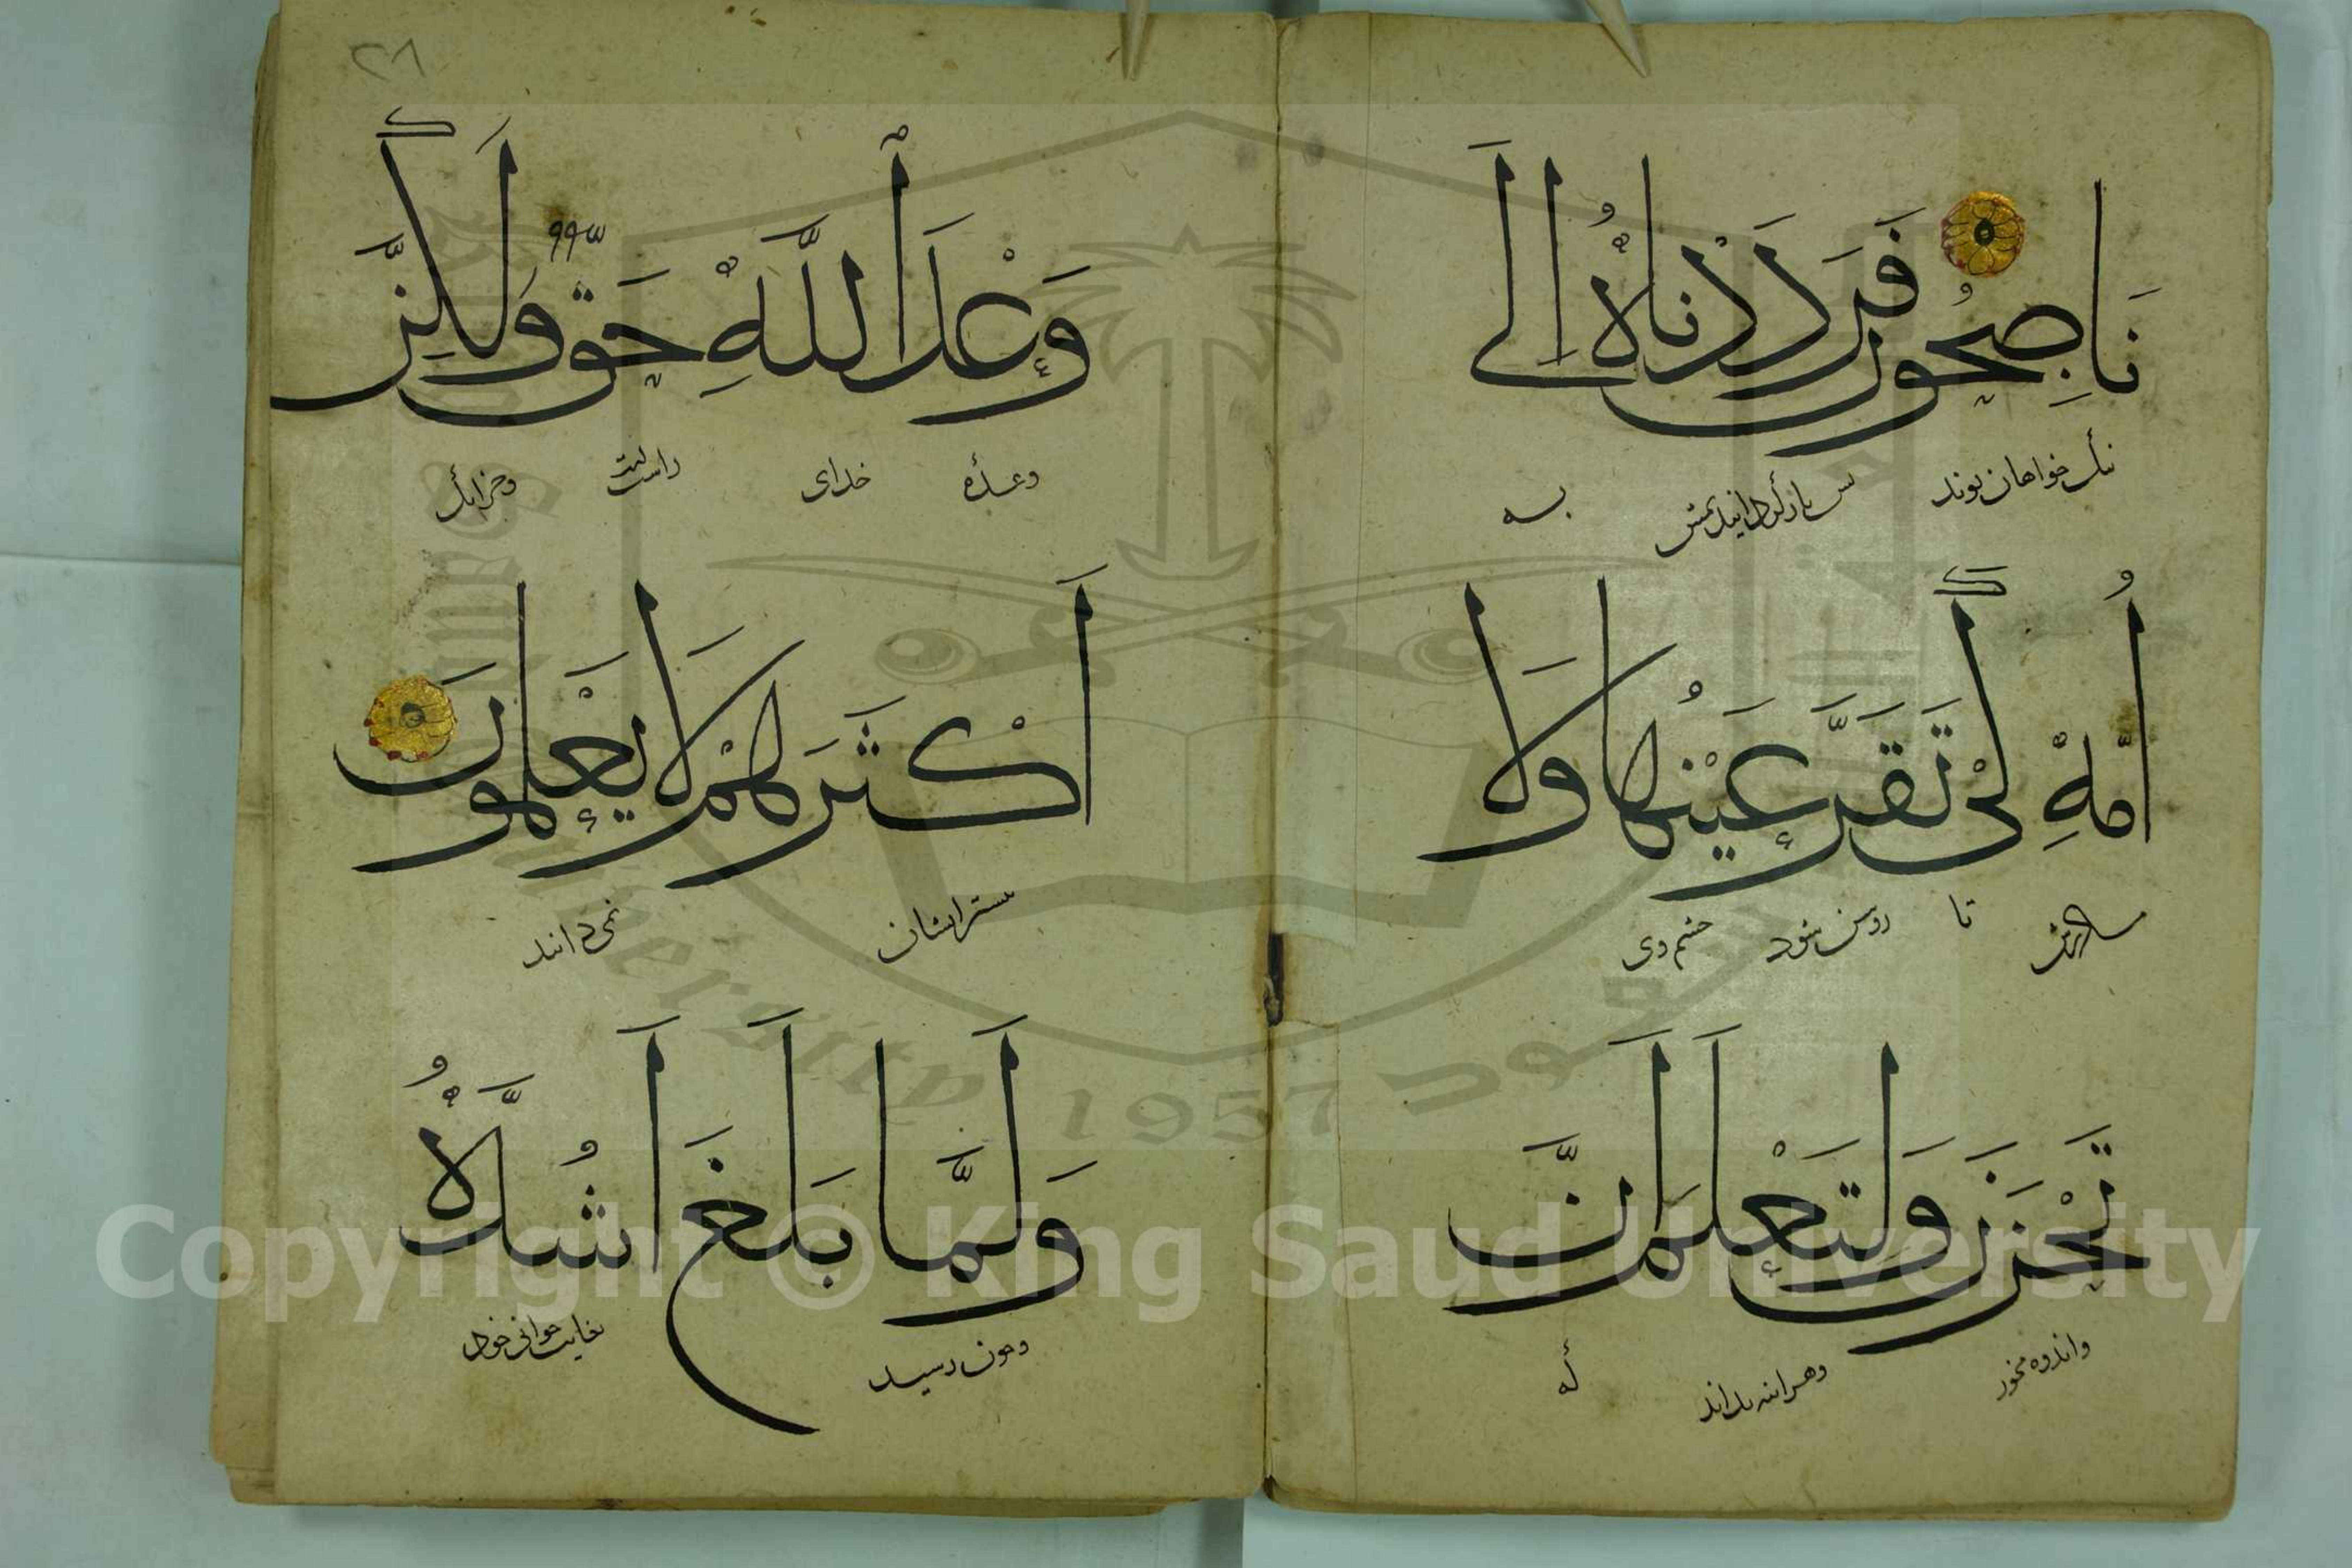 نَاصِحُونَ فَرَدَدْنَاهُ إِلَى
نیک خواهان بوند بس بازگردانیدیمش به
أُمِّهِ كَيْ تَقَرَّ عَيْنُهَا وَلَا
تا روشن شود چشم وی
تَحْزَنَ وَلِتَعْلَمَ أَنَّ
واندوه نخورد وهراینه بداند که
٢٨
وَعْدَ اللَّهِ حَقٌّ وَلَٰكِنَّ
وعدۀ خدای راست است وجز آنک
أَكْثَرَهُمْ لَا يَعْلَمُونَ
بیشتر ایشان نمی دانند
وَلَمَّا بَلَغَ أَشُدَّهُ
وچون رسید بغایت جوانی خود
Copyright © King Saud University
1957